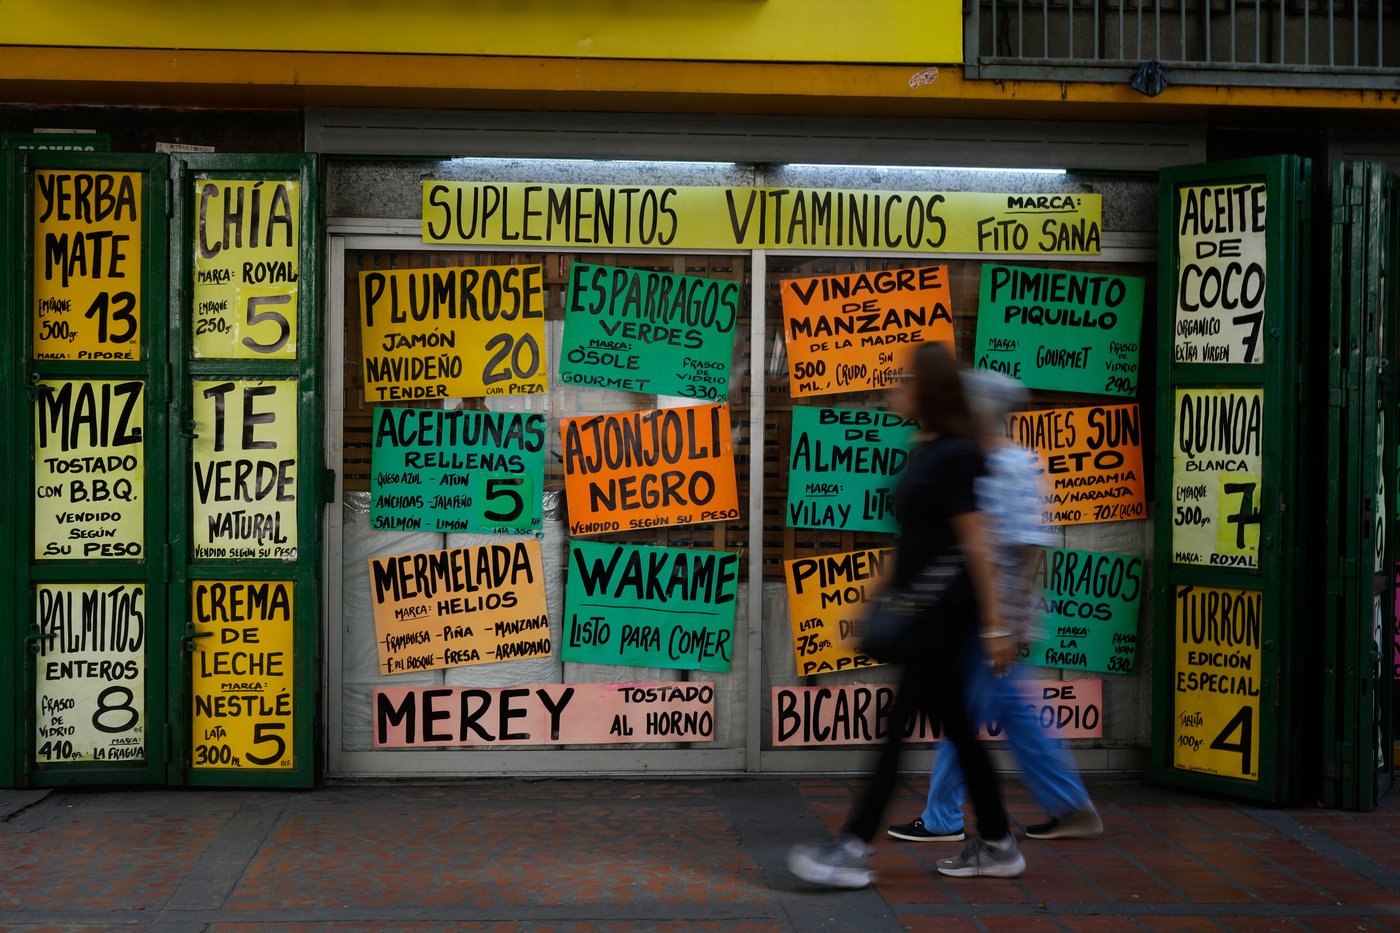 YERBA
MATE
EMPAQUE
500gr
13
MARCA: PIPORÉ
CHÍA
MARCA: ROYAL
EMPAQUE
250gr
5
MAIZ
TOSTADO
CON B.B.Q.
VENDIDO
SEGÚN
SU PESO
TE
VERDE
NATURAL
VENDIDO SEGÚN SU PESO
PALMITOS
ENTEROS
FRASCO
DE
VIDRIO
410grs
8
REF
MARCA:
LA FRAGUA
CREMA
DE
LECHE
MARCA:
NESTLÉ
LATA
300ml
5
REF.
SUPLEMENTOS VITAMINICOS
MARCA:
FITO SANA
PLUMROSE
JAMÓN
NAVIDEÑO
TENDER
20
CADA PIEZA
ESPARRAGOS
VERDES
MARCA:
ÓSOLE
GOURMET
FRASCO
DE
VIDRIO
330grs
VINAGRE
DE
MANZANA
DE LA MADRE
500
ML., CRUDO, SIN
PIMIENTO
PIQUILLO
MARCA:
ÓSOLE
GOURMET
FRASCO
DE
VIDRIO
290grs
ACEITUNAS
RELLENAS
-QUESO AZUL -ATÚN
-ANCHOAS -JALAPEÑO
-SALMÓN -LIMÓN
5
LATA 350gr
AJONJOLI
NEGRO
VENDIDO SEGÚN SU PESO
BEBIDA
DE
ALMEND
MARCA:
VILAY
SUN
ETO
MACADAMIA
NARANJA
BLANCO - 70% CACAO
MERMELADA
MARCA: HELIOS
-FRAMBUESA -PIÑA -MANZANA
-F. DEL BOSQUE -FRESA -ARANDANO
WAKAME
LISTO PARA COMER
PIMEN
MOL
LATA
75grs
PAPR
ARRAGOS
ANCOS
MARCA:
LA
FRAGUA
FRASCO
VIDRIO
530grs
MEREY
TOSTADO
AL HORNO
BICARBON
DE
SODIO
ACEITE
DE
COCO
ORGANICO
EXTRA VIRGEN
7
QUINOA
BLANCA
EMPAQUE
500grs
7
MARCA: ROYAL
TURRÓN
EDICIÓN
ESPECIAL
TABLETA
100gr
4